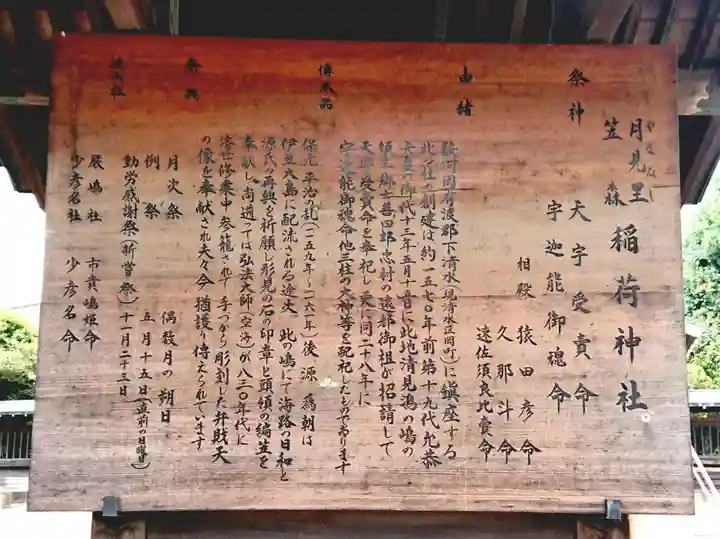 月見里 稲荷神社
やまなし
笠森
祭神
天宇受賣命
宇迦能御魂命
相殿 猿田彦命
久那斗命
速佐須良比賣命
由緒
駿河国有渡郡下清水(現清水笠岡町)に鎮座する
此の社の創建は約一五七〇年前第十九代允恭
天皇の御代十三年五月十五日に此地清見潟の嶋の
領主 善四郎忠村の遠郡御祖が招請して
天宇受賣命を奉祀し 次に同二十八年に
宇迦能御魂命他三柱の大神等を配祀したものであります
傳承品
保元 平治の乱(一一五九年~一一六一年)後 源 為朝は
伊豆大島に配流される途次 此の嶋にて海路の日和と
源氏の再興を祈願し形見の石の印章と頭領の編笠を
奉献し 尚遡っては弘法大師(空海)が八三〇年代に
済世修業中参籠されて手づから彫刻した弁財天
の像を奉献され夫々今猶護り傳えられています
祭典
月次祭 偶数月の朔日
例祭 五月十五日(直前の日曜)
勤労感謝祭(新嘗祭)十一月二十三日
境内社
厳嶋社 市貴嶋姫命
少彦名社 少彦名命